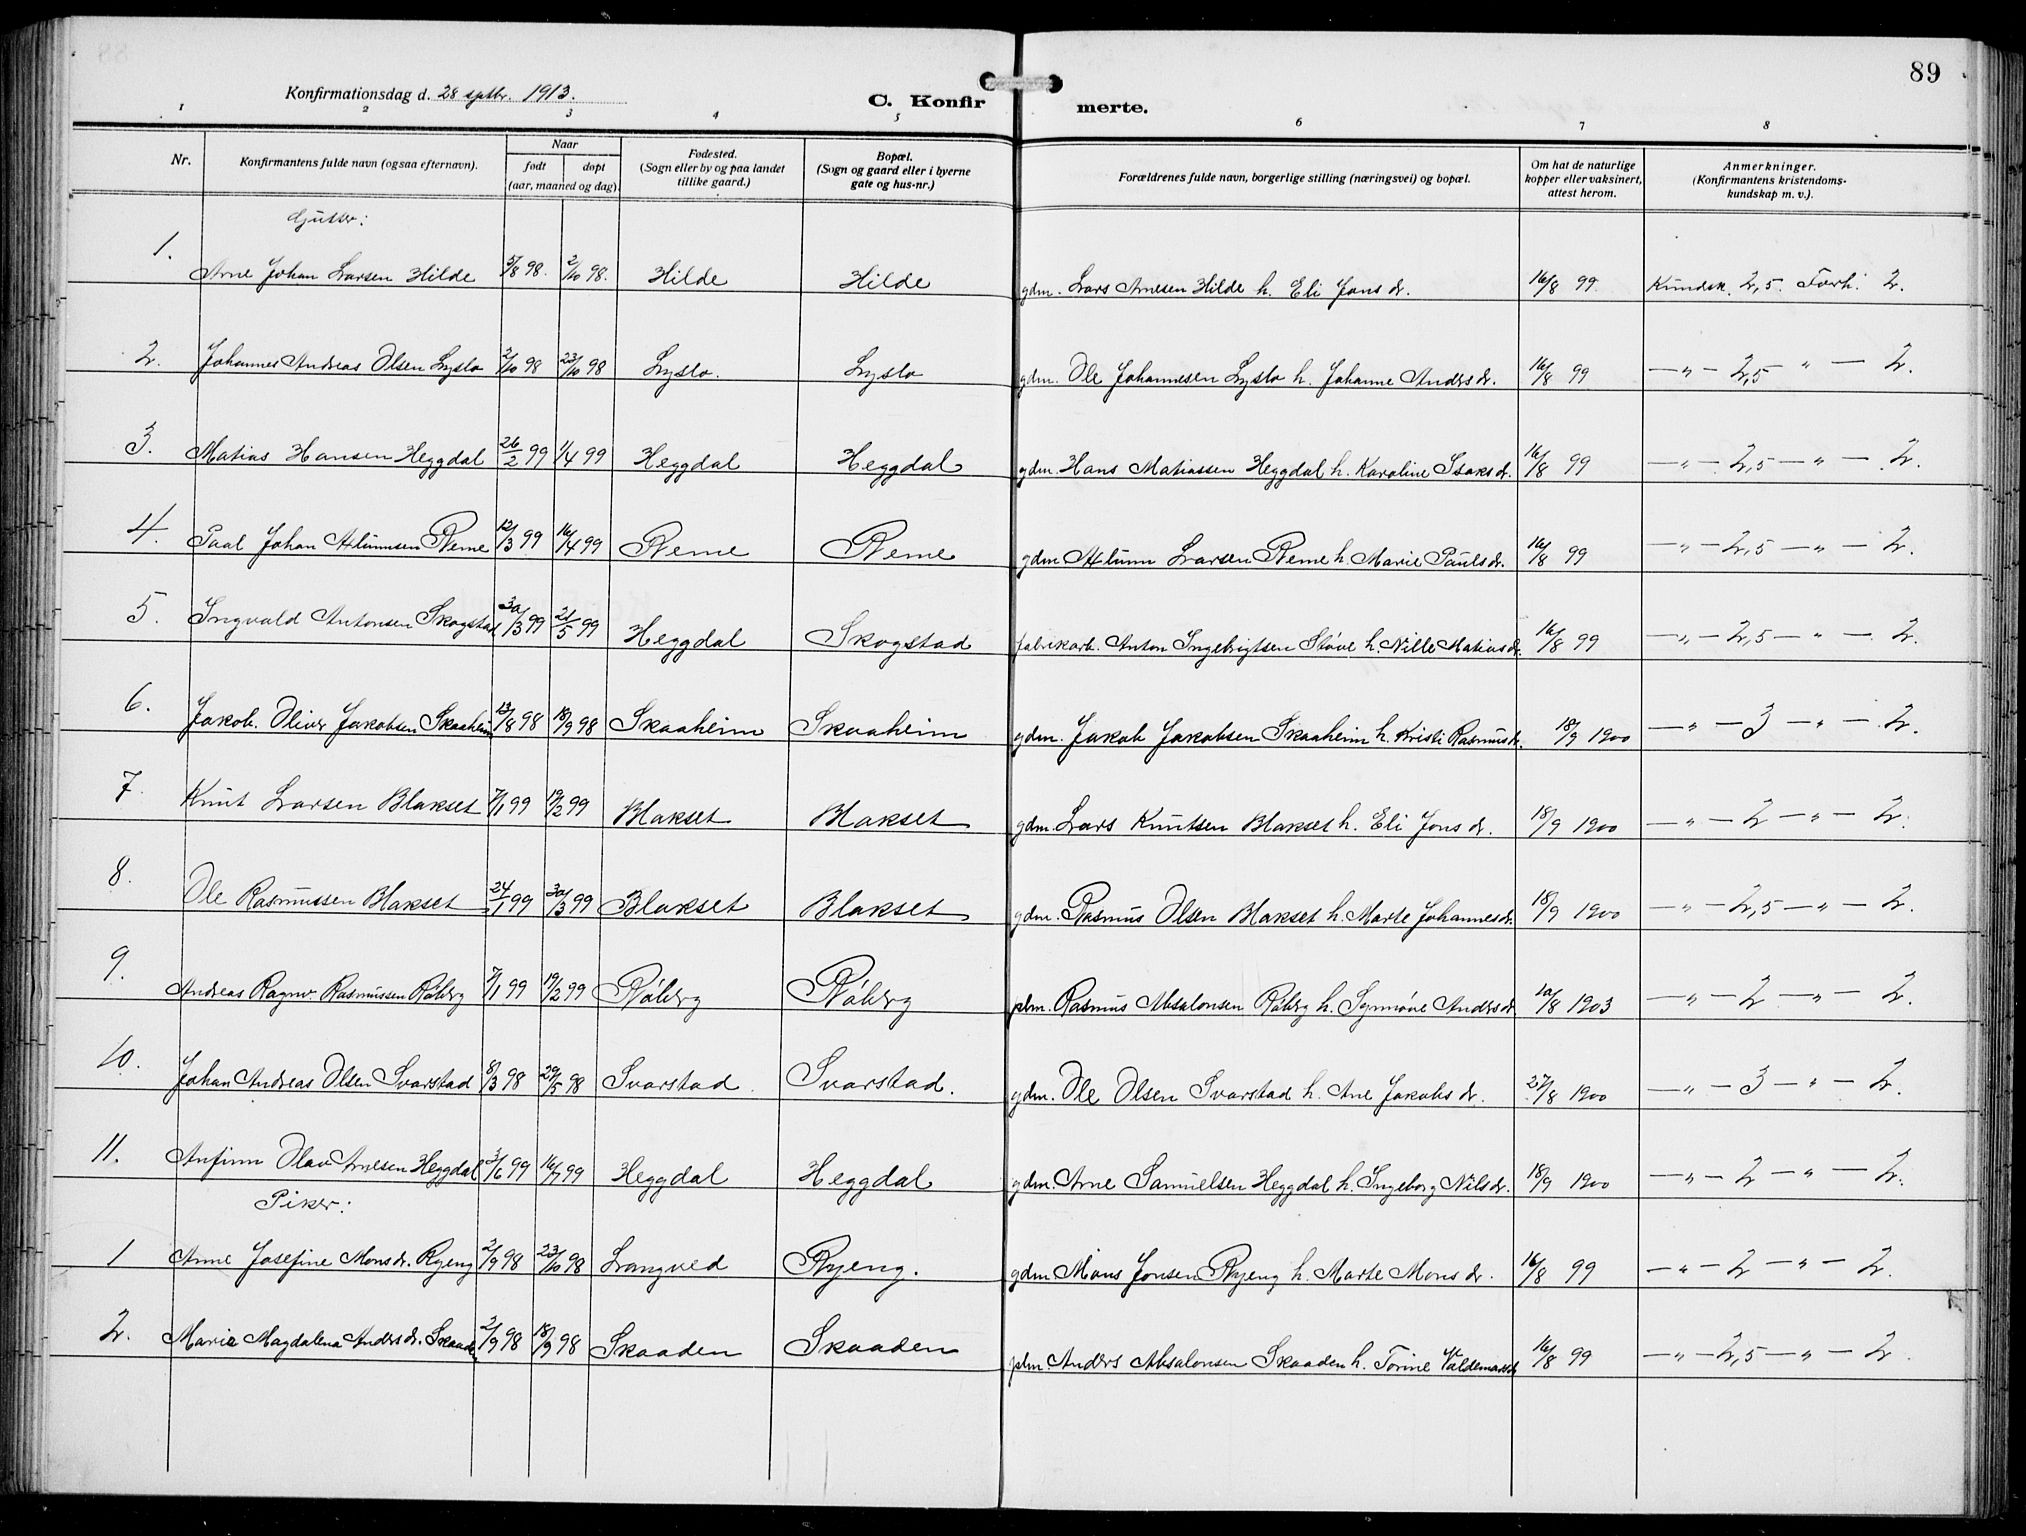 89
Konfirmationsdag d. 28 septbr. 1913.
C. Konfir merte.
1 2 3 4 5 6 7 8
Nr.
Konfirmantens fulde navn (ogsaa efternavn).
Naar
født
døpt
(aar, maaned og dag).
Fødested.
(Sogn eller by og paa landet
tillike gaard.)
Bopæl.
(Sogn og gaard eller i byerne
gate og hus-nr.)
Forældrenes fulde navn, borgerlige stilling (næringsvei) og bopæl.
Om hat de naturlige
kopper eller vaksinert,
attest herom.
Anmerkninger.
(Konfirmantens kristendoms-
kundskap m. v.).
Gutter:
1. Arne Johan Larsen Hilde 98. 2/10 98. Hilde Hilde gdm. Lars Arnesen Hilde h. Eli Jons dr. 16/8 99. Kundsk. 2,5. Forh. 2.
2. Johannes Andreas Olsen Lyslo 2/10 98 23/10 98 Lyslo. Lyslo gdm. Ole Johannesen Lyslo h. Johanne Anders dr. 16/8 99 — „ — 2,5 „ — 2.
3. Matias Hansen Heggdal 26/2 99 1/4 99 Heggdal Heggdal gdm. Hans Matiassen Heggdal h. Karoline Isaks dr. 16/8 99 — „ — 2,5 — „ — 2.
4. Paal Johan Reme 12/3 99 16/4 99 Reme Reme gdm. Larsen Reme h. Marie Pauls dr. 16/8 99 — „ — 2,5 — „ — 2.
5. Ingvald Antonsen Skogstad 30/3 99 21/5 99 Heggdal Skogstad fabrikarb. Anton Ingebrigtsen Støve h. Nille Matias dr. 16/8 99 — „ — 2,5 — „ — 2.
6. Jakob Oliver Jakobsen Skaaheim 13/8 98 18/9 98 Skaaheim Skaaheim gdm. Jakob Jakobsen Skaaheim h. Kristi Rasmus dr. 18/9 1900 — „ — 3 — „ — 2.
7. Knut Larsen Blakset 7/1 99 19/2 99 Blakset Blakset gdm. Lars Knutsen Blakset h. Eli Jons dr. 18/9 1900 — „ — 2 — „ — 2.
8. Ole Rasmussen Blakset 24/1 99 30/3 99 Blakset Blakset gdm. Rasmus Olsen Blakset h. Marte Johannes dr. 18/9 1900 — „ — 2,5 — „ — 2.
9. Andreas Ragnv. Rasmussen Røberg 7/1 99 19/2 99 Røberg Røberg plm. Rasmus Absalonsen Røberg h. Synnøve Anders dr. 10/8 1903 — „ — 2 — „ — 2.
10. Johan Andreas Olsen Svarstad 8/3 98 29/5 98 Svarstad Svarstad. gdm. Ole Olsen Svarstad h. Ane Jakobs dr. 27/8 1900 — „ — 3 — „ — 2.
11. Anfinn Olav Arnesen Heggdal 3/6 99 16/7 99 Heggdal Heggdal gdm. Arne Samuelsen Heggdal h. Ingeborg Nils dr. 18/9 1900 — „ — 2 — „ — 2.
Piker:
1 Anne Josefine Mons dr. Ryeng 2/9 98 23/10 98 Langved Ryeng. gdm Mons Jonsen Ryeng h. Marte Mons dr. 16/8 99 — „ — 2 — „ — 2.
2. Marie Magdalena Anders dr. Skaaden 2/9 98 18/9 98 Skaaden Skaaden plm Anders Absalonsen Skaaden h. Torine Valdemars dr 16/8 99 — „ — 2,5 — „ — 2.